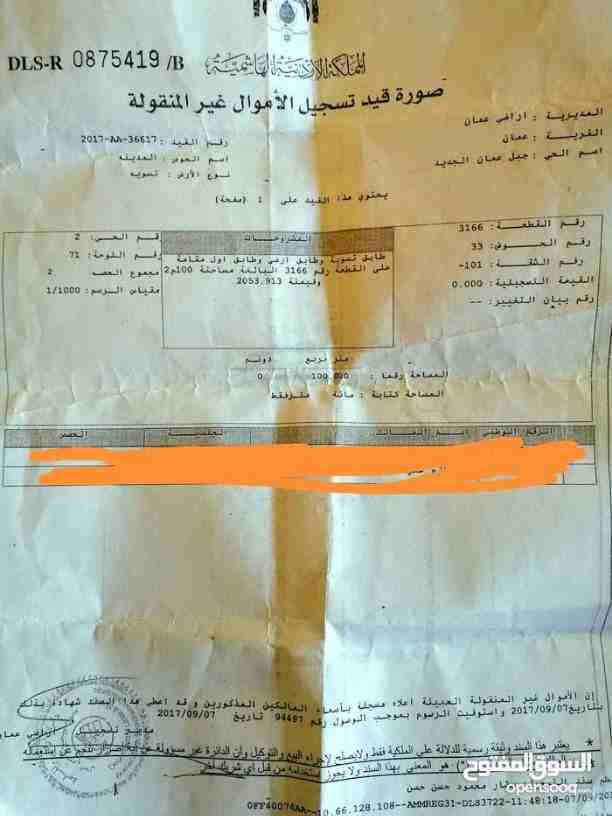 DLS-R 0875419 /B
المملكة الأردنية الهاشمية
صورة قيد تسجيل الأموال غير المنقولة
المديرية : اراضي عمان
القرية : عمان
اسم الحي : جبل عمان الجديد
رقم القيد : 2017-AA-36617
اسم الحوض : المدينه
نوع الأرض : تسويه
يحتوي هذا القيد على 1 (صفحة)
رقم القطعة: 3166
رقم الحوض: 33
رقم الشقة: 101-
القيمة التسجيلية: 0.000
رقم بيان التغيير: --
المشروحات
طابق تسوية وطابق ارضي وطابق اول مقامة
على القطعة رقم 3166 البالغة مساحتة 100م2
وقيمتة 2053.913
رقم الحي: 2
رقم اللوحة: 71
مجموع الحصص 2
مقياس الرسم: 1/1000
متر مربع دونم
المساحة رقما : 100.000 0
المساحة كتابة : مائة مترفقط
الرقم الوطني اسم المالك الجنسية الحصص
إن الأموال غير المنقولة المبينة اعلاه مسجلة بأسماء المالكين المذكورين و قد اعطي هذا السند شهادة بذلك
بتاريخ 2017/09/07 واستوفيت الرسوم بموجب الوصول رقم 94497 تاريخ 2017/09/07
مدير تسجيل اراضي عمان
* يعتبر هذا السند وثيقة رسمية للدلالة على الملكية فقط ولايصلح لإجراء البيع والتوكيل وأن الدائرة غير مسؤولة عن أية اضرار تنجم عن إستعماله
هو المعني بهذا السند ولا يجوز إستخدامه من قبل أي شريك آخر
محمود حسن حسن
0FF40074AA--10.66.128.108--AMMREG31-DLS3722-11:48:18-07/09/
السوق المفتوح
opensooq.com